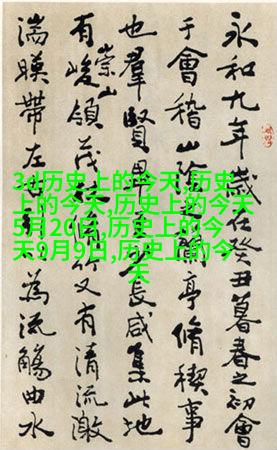 永和九年歲在癸丑暮春之初會
于會稽山陰之蘭亭脩稧事
也羣賢畢長咸集此地
有崇山峻領茂脩竹又有清流激
湍暎帶左為流觴曲水
3d历史上的今天,历史
上的今天,历史上的今天
5月20日,历史上的今
天9月9日,历史上的今
天